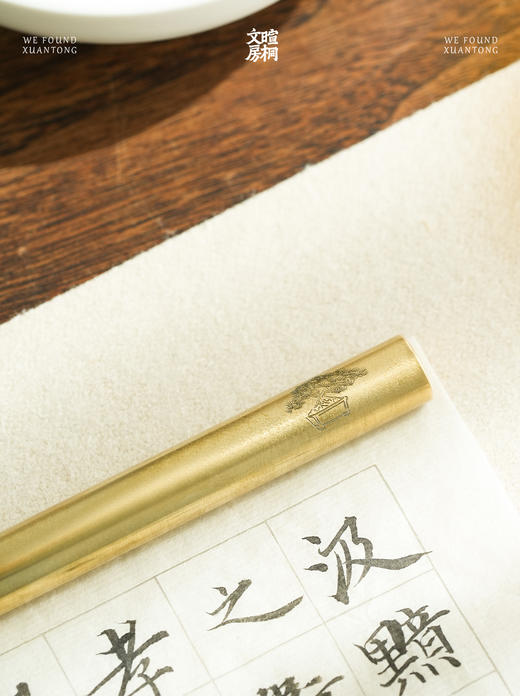 WE FOUND
XUANTONG
暄桐
文房
WE FOUND
XUANTONG
汲黯
之
孝